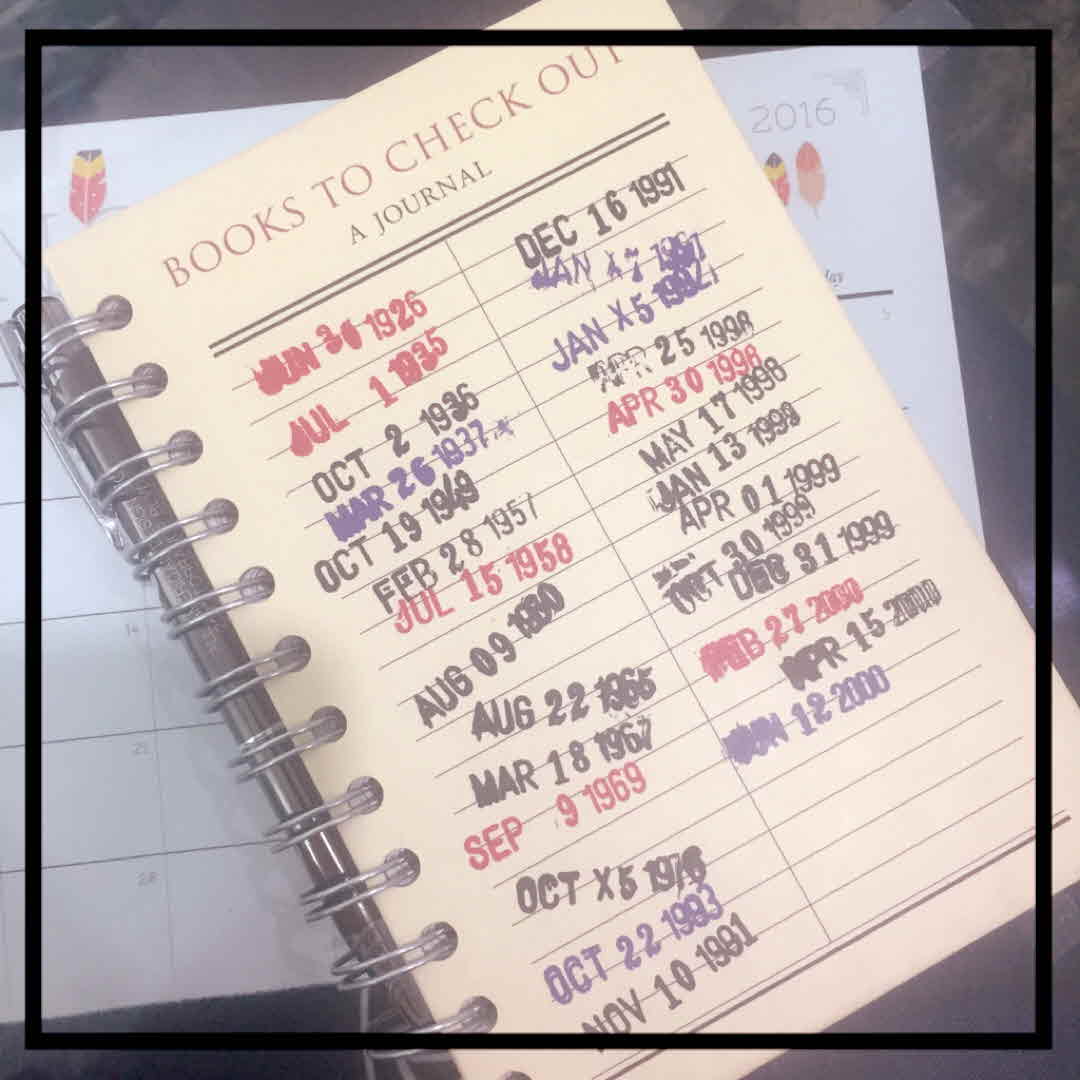 BOOKS TO CHECK OUT
A JOURNAL
2016
JUN 30 1926
JUL 1 1935
OCT 2 1936
MAR 26 1937
OCT 19 1949
FEB 28 1957
JUL 15 1958
AUG 09
AUG 22 1965
MAR 18 1967
SEP 9 1969
OCT X5 1976
OCT 22 1983
NOV 10 1991
DEC 16 1991
JAN
JAN X5
APR 25 1998
APR 30 1998
MAY 17 1998
JAN 13 1998
APR 01 1999
OCT 30 1999
DEC 31 1999
FEB 27 2000
APR 15 2000
JUN 12 2000
14
21
28
5